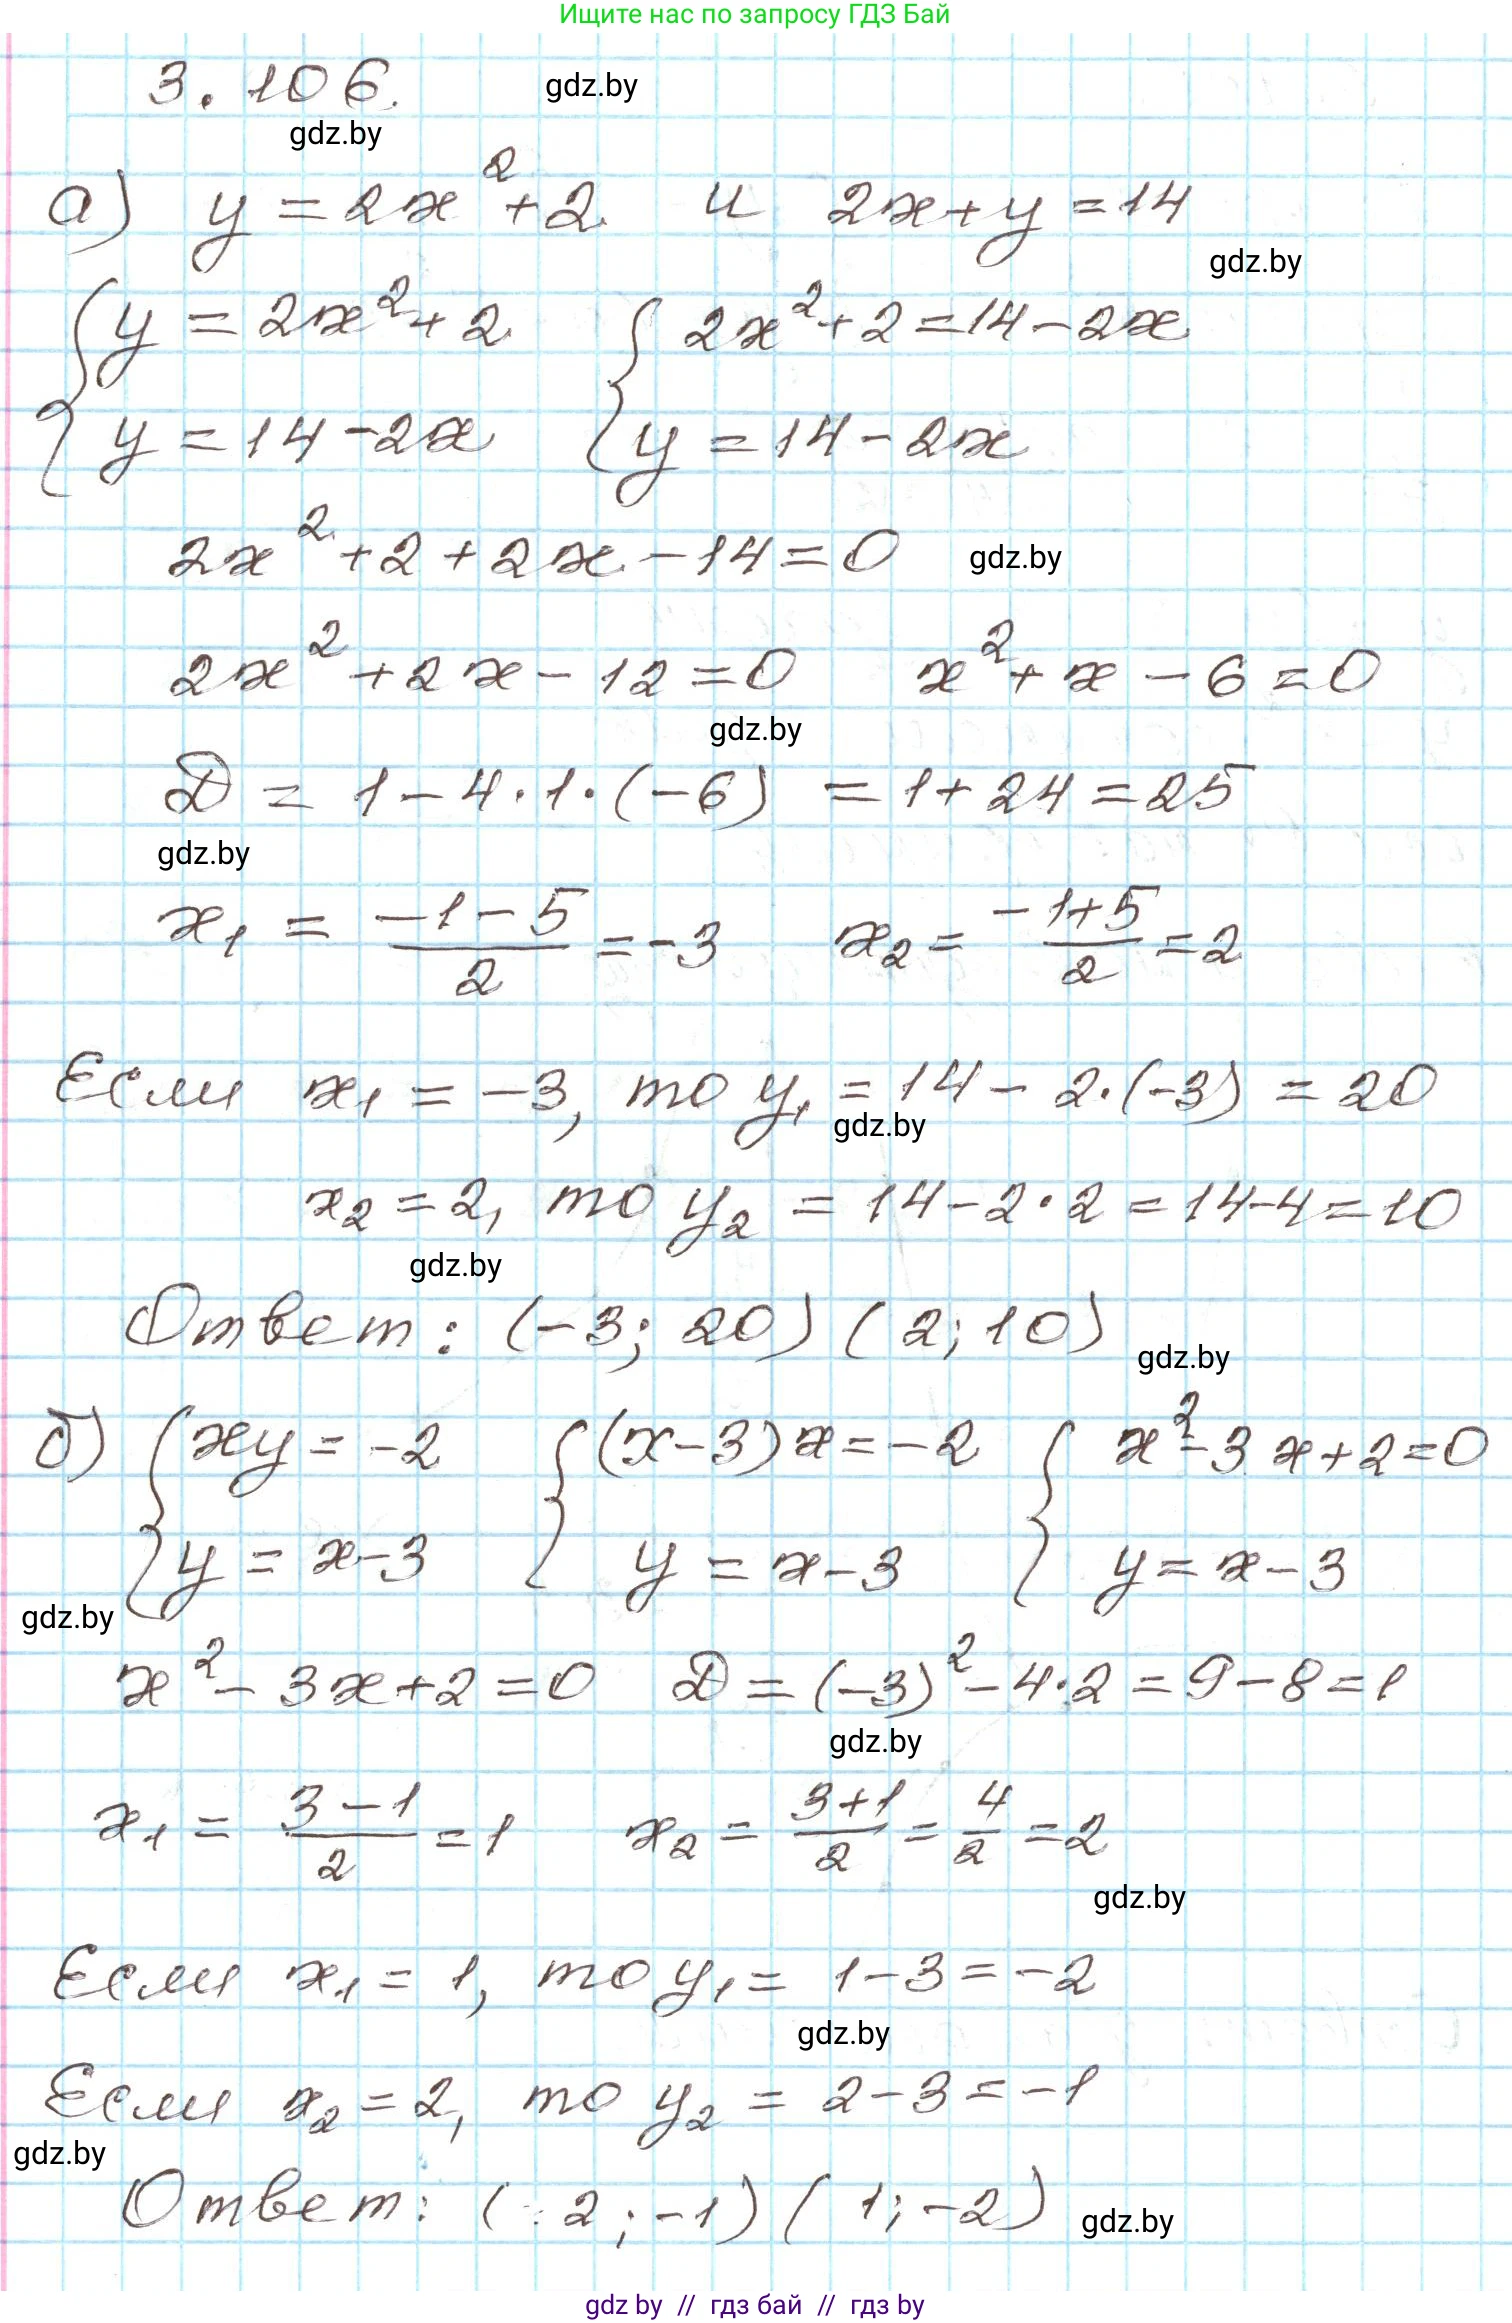 Ищите нас по запросу ГДЗ Бай
3.106.
gdz.by
gdz.by
а) y = 2x² + 2 и 2x + y = 14
gdz.by
{ y = 2x² + 2 { 2x² + 2 = 14 - 2x
y = 14 - 2x y = 14 - 2x
2x² + 2 + 2x - 14 = 0 gdz.by
2x² + 2x - 12 = 0 x² + x - 6 = 0
gdz.by
D = 1 - 4·1·(-6) = 1 + 24 = 25
gdz.by
x₁ = (-1-5)/2 = -3 x₂ = (-1+5)/2 = 2
Если x₁ = -3, то y₁ = 14 - 2·(-3) = 20
gdz.by
x₂ = 2, то y₂ = 14 - 2·2 = 14 - 4 = 10
gdz.by
Ответ: (-3; 20) (2; 10)
gdz.by
б) { xy = -2 { (x-3)x = -2 { x² - 3x + 2 = 0
y = x - 3 y = x - 3 y = x - 3
gdz.by
x² - 3x + 2 = 0 D = (-3)² - 4·2 = 9 - 8 = 1
gdz.by
x₁ = (3-1)/2 = 1 x₂ = (3+1)/2 = 4/2 = 2
gdz.by
Если x₁ = 1, то y₁ = 1 - 3 = -2
gdz.by
Если x₂ = 2, то y₂ = 2 - 3 = -1
gdz.by
Ответ: (2; -1) (1; -2)
gdz.by
gdz by // гдз бай // гдз by